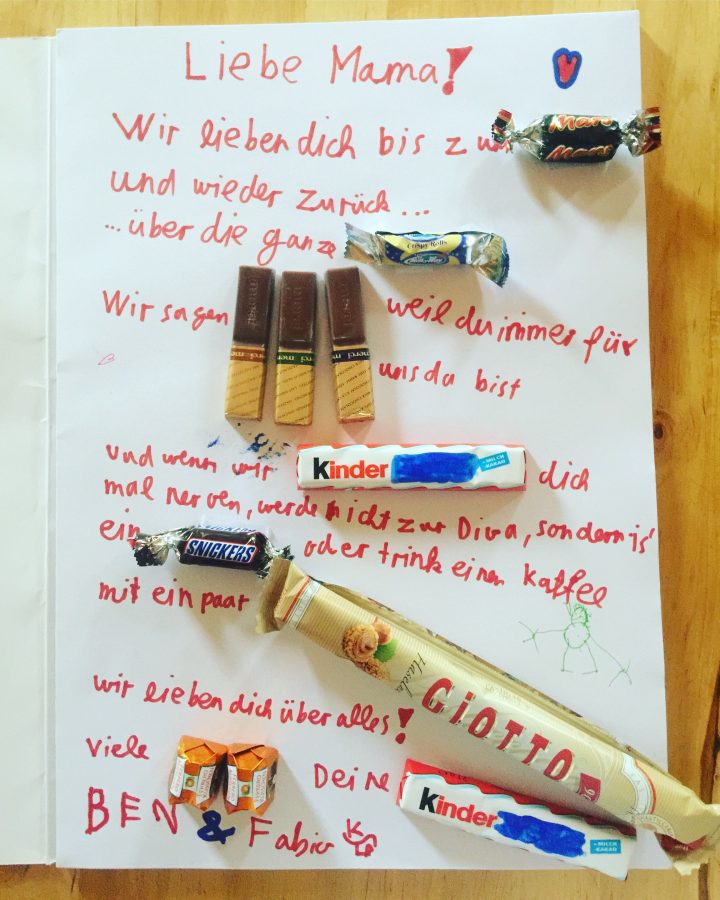 Liebe Mama!
Wir lieben dich bis zum Mars Mars
und wieder zurück...
...über die ganze Crispy Rolls Milky Way
Wir sagen merci merci merci weil du immer für
uns da bist
und wenn wir Kinder +MILCH -KAKAO dich
mal nerven, werde nicht zur Diva, sondern is'
ein SNICKERS oder trink einen Kaffee
mit ein paar Haselnuss GIOTTO
wir lieben dich über alles!
viele Deine Kinder +MILCH -KAKAO
BEN & Fabio